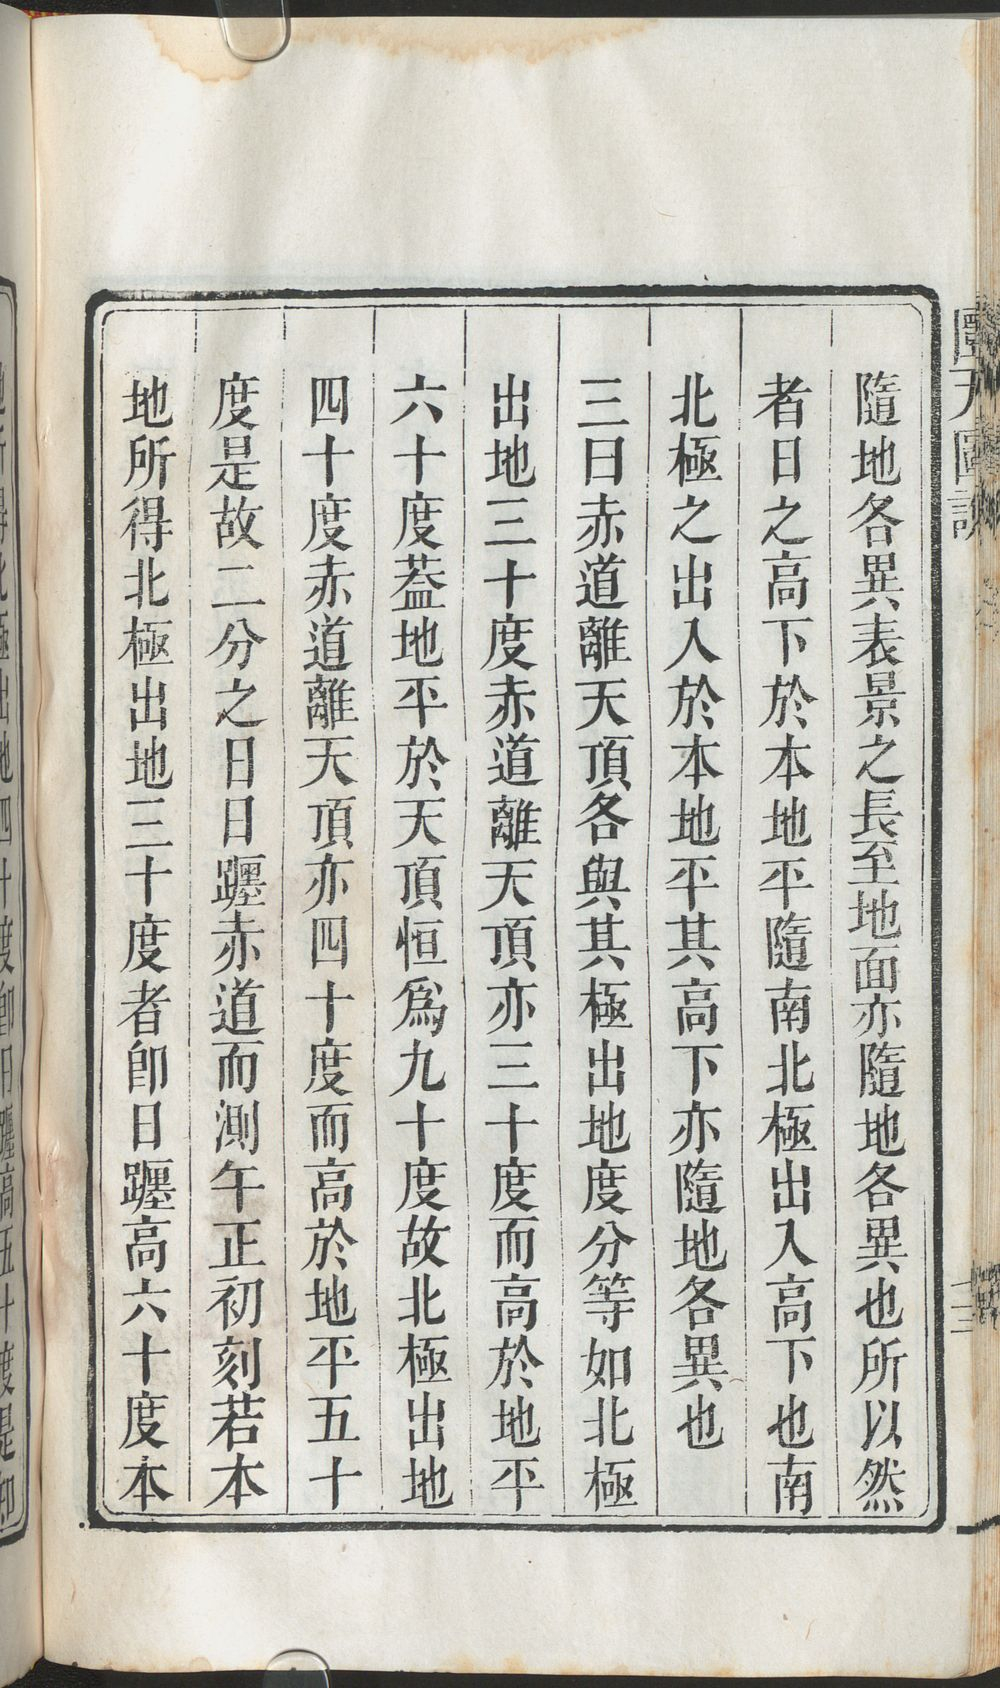 隨地各異表景之長至地面亦隨地各異也所以然
者日之高下於本地平隨南北極出入高下也南
北極之出入於本地平其高下亦隨地各異也
三曰赤道離天頂各與其極出地度分等如北極
出地三十度赤道離天頂亦三十度而高於地平
六十度葢地平於天頂恒爲九十度故北極出地
四十度赤道離天頂亦四十度而高於地平五十
度是故二分之日日躔赤道而測午正初刻若本
地所得北極出地三十度者卽日躔高六十度本
十三
北極出地四十度卽日躔高五十度是